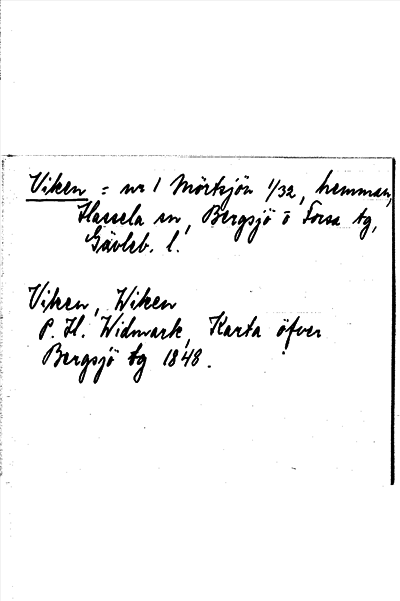 Viken = nr 1 Mörtsjön 1/32, hemman,
Hassela sn, Bergsjö o Forsa tg,
Gävleb. l.
Viken, Wiken
P. H. Widmark, Karta öfver
Bergsjö tg 1848.